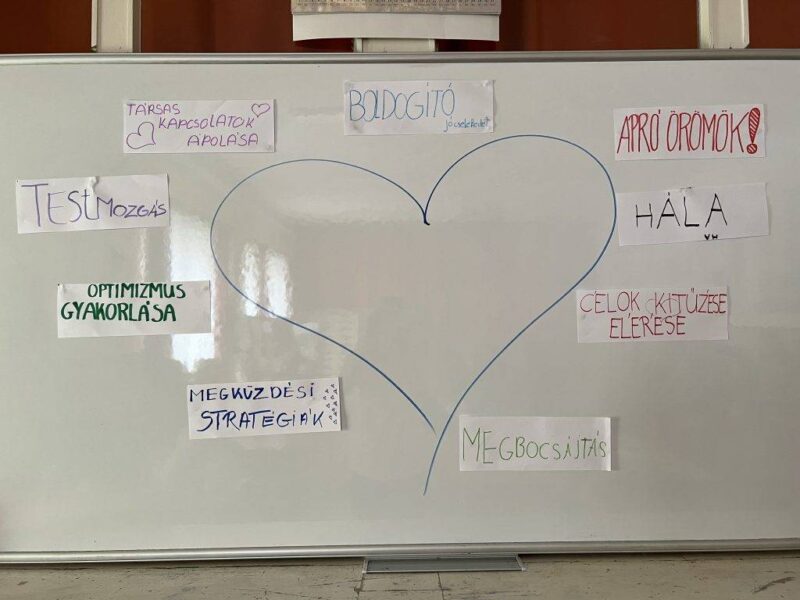 BOLDOGÍTÓ
jócselekedet
TÁRSAS
KAPCSOLATOK
ÁPOLÁSA
APRÓ ÖRÖMÖK!
TEStMOZGÁS
HÁLA
OPTIMIZMUS
GYAKORLÁSA
CÉLOK KITŰZÉSE
ELÉRÉSE
MEGKÜZDÉSI
STRATÉGIÁK
MEGBOCSÁJTÁS